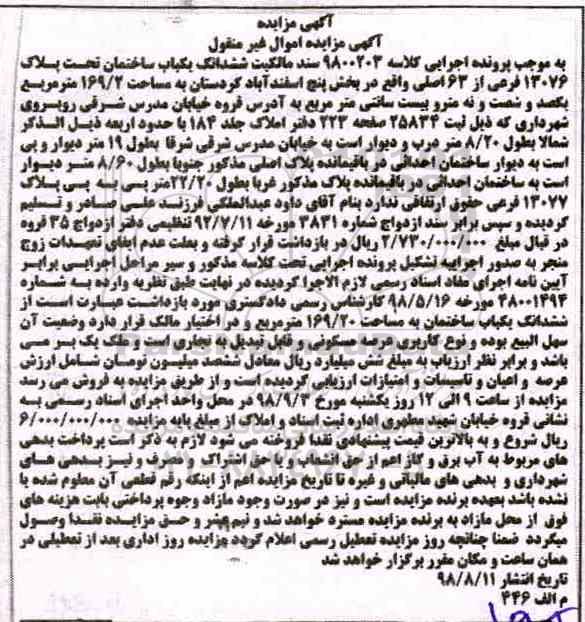 آگهی مزایده
آگهی مزایده اموال غیر منقول
به موجب پرونده اجرایی کلاسه ۹۸۰۰۲۰۳ سند مالکیت ششدانگ یکباب ساختمان تحت پلاک
۱۳۰۷۶ فرعی از ۶۳ اصلی واقع در بخش پنج اسفندآباد کردستان به مساحت ۱۶۹/۲ مترمربع
یکصد و شصت و نه مترو بیست سانتی متر مربع به آدرس قروه خیابان مدرس شرقی روبروی
شهرداری که ذیل ثبت ۲۵۸۳۴ صفحه ۲۲۳ دفتر املاک جلد ۱۸۴ با حدود اربعه ذیل الذکر
شمالا بطول ۸/۲۰ متر درب و دیوار است به خیابان مدرس شرقی شرقا بطول ۱۹ متر دیوار و پی
است به دیوار ساختمان احداثی در باقیمانده پلاک اصلی مذکور جنوبا بطول ۸/۶۰ متر دیوار
است به ساختمان احداثی در باقیمانده پلاک مذکور غربا بطول ۲۲/۲۰متر پی به پی پلاک
۱۳۰۷۷ فرعی حقوق ارتفاقی ندارد بنام آقای داود عبدالملکی فرزند علی صادر و تسلیم
گردیده و سپس برابر سند ازدواج شماره ۳۸۳۱ مورخه ۹۲/۷/۱۱ تنظیمی دفتر ازدواج ۳۵ قروه
در قبال مبلغ ۲/۷۳۰/۰۰۰/۰۰۰ ریال در بازداشت قرار گرفته و بعلت عدم ایفای تعهدات زوج
منجر به صدور اجراییه تشکیل پرونده اجرایی تحت کلاسه مذکور و سیر مراحل اجرایی برابر
آیین نامه اجرای مفاد اسناد رسمی لازم الاجرا گردیده در نهایت طبق نظریه وارده به شماره
۴۸۰۰۱۴۹۴ مورخه ۹۸/۵/۱۶ کارشناس رسمی دادگستری مورد بازداشت عبارت است از
ششدانگ یکباب ساختمان به مساحت ۱۶۹/۲۰ مترمربع و در اختیار مالک قرار دارد وضعیت آن
سهل البیع بوده و نوع کاربری عرصه مسکونی و قابل تبدیل به تجاری است و ملک یک بر می
باشد و برابر نظر ارزیاب به مبلغ شش میلیارد ریال معادل ششصد میلیون تومان شامل ارزش
عرصه و اعیان و تاسیسات و امتیازات ارزیابی گردیده است و از طریق مزایده به فروش می رسد
مزایده از ساعت ۹ الی ۱۲ روز یکشنبه مورخ ۹۸/۹/۳ در محل واحد اجرای اسناد رسمی به
نشانی قروه خیابان شهید مطهری اداره ثبت اسناد و املاک از مبلغ پایه مزایده ۶/۰۰۰/۰۰۰/۰۰۰
ریال شروع و به بالاترین قیمت پیشنهادی نقدا فروخته می شود لازم به ذکر است پرداخت بدهی
های مربوط به آب برق و گاز اعم از حق انشعاب و یا حق اشتراک و مصرف و نیز بدهی های
شهرداری و بدهی های مالیاتی و غیره تا تاریخ مزایده اعم از اینکه رقم قطعی آن معلوم شده یا
نشده باشد بعهده برنده مزایده است و نیز در صورت وجود مازاد وجوه پرداختی بابت هزینه های
فوق از محل مازاد به برنده مزایده مسترد خواهد شد و نیم عشر و حق مزایده نقدا وصول
میگردد ضمنا چنانچه روز مزایده تعطیل رسمی اعلام گردد مزایده روز اداری بعد از تعطیلی در
همان ساعت و مکان مقرر برگزار خواهد شد
تاریخ انتشار ۹۸/۸/۱۱
م الف ۴۴۶